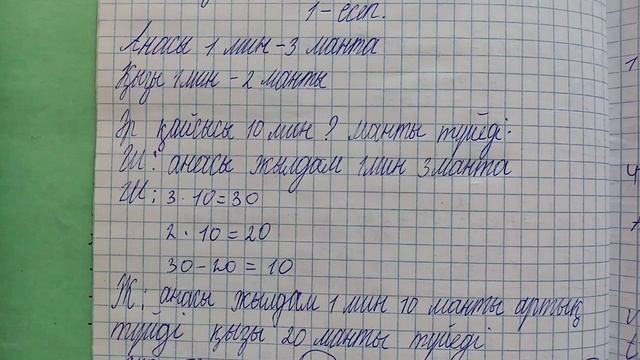 1-есеп.
Анасы 1 мин - 3 манта
Қызы 1 мин - 2 манты
Әр қайсысы 10 мин ? манты түйеді.
Ш: анасы жылдам 1 мин 3 манта
Ш: 3 · 10 = 30
2 · 10 = 20
30 - 20 = 10
Ж: анасы жылдам 1 мин 10 манты артық
түйді қызы 20 манты түйеді